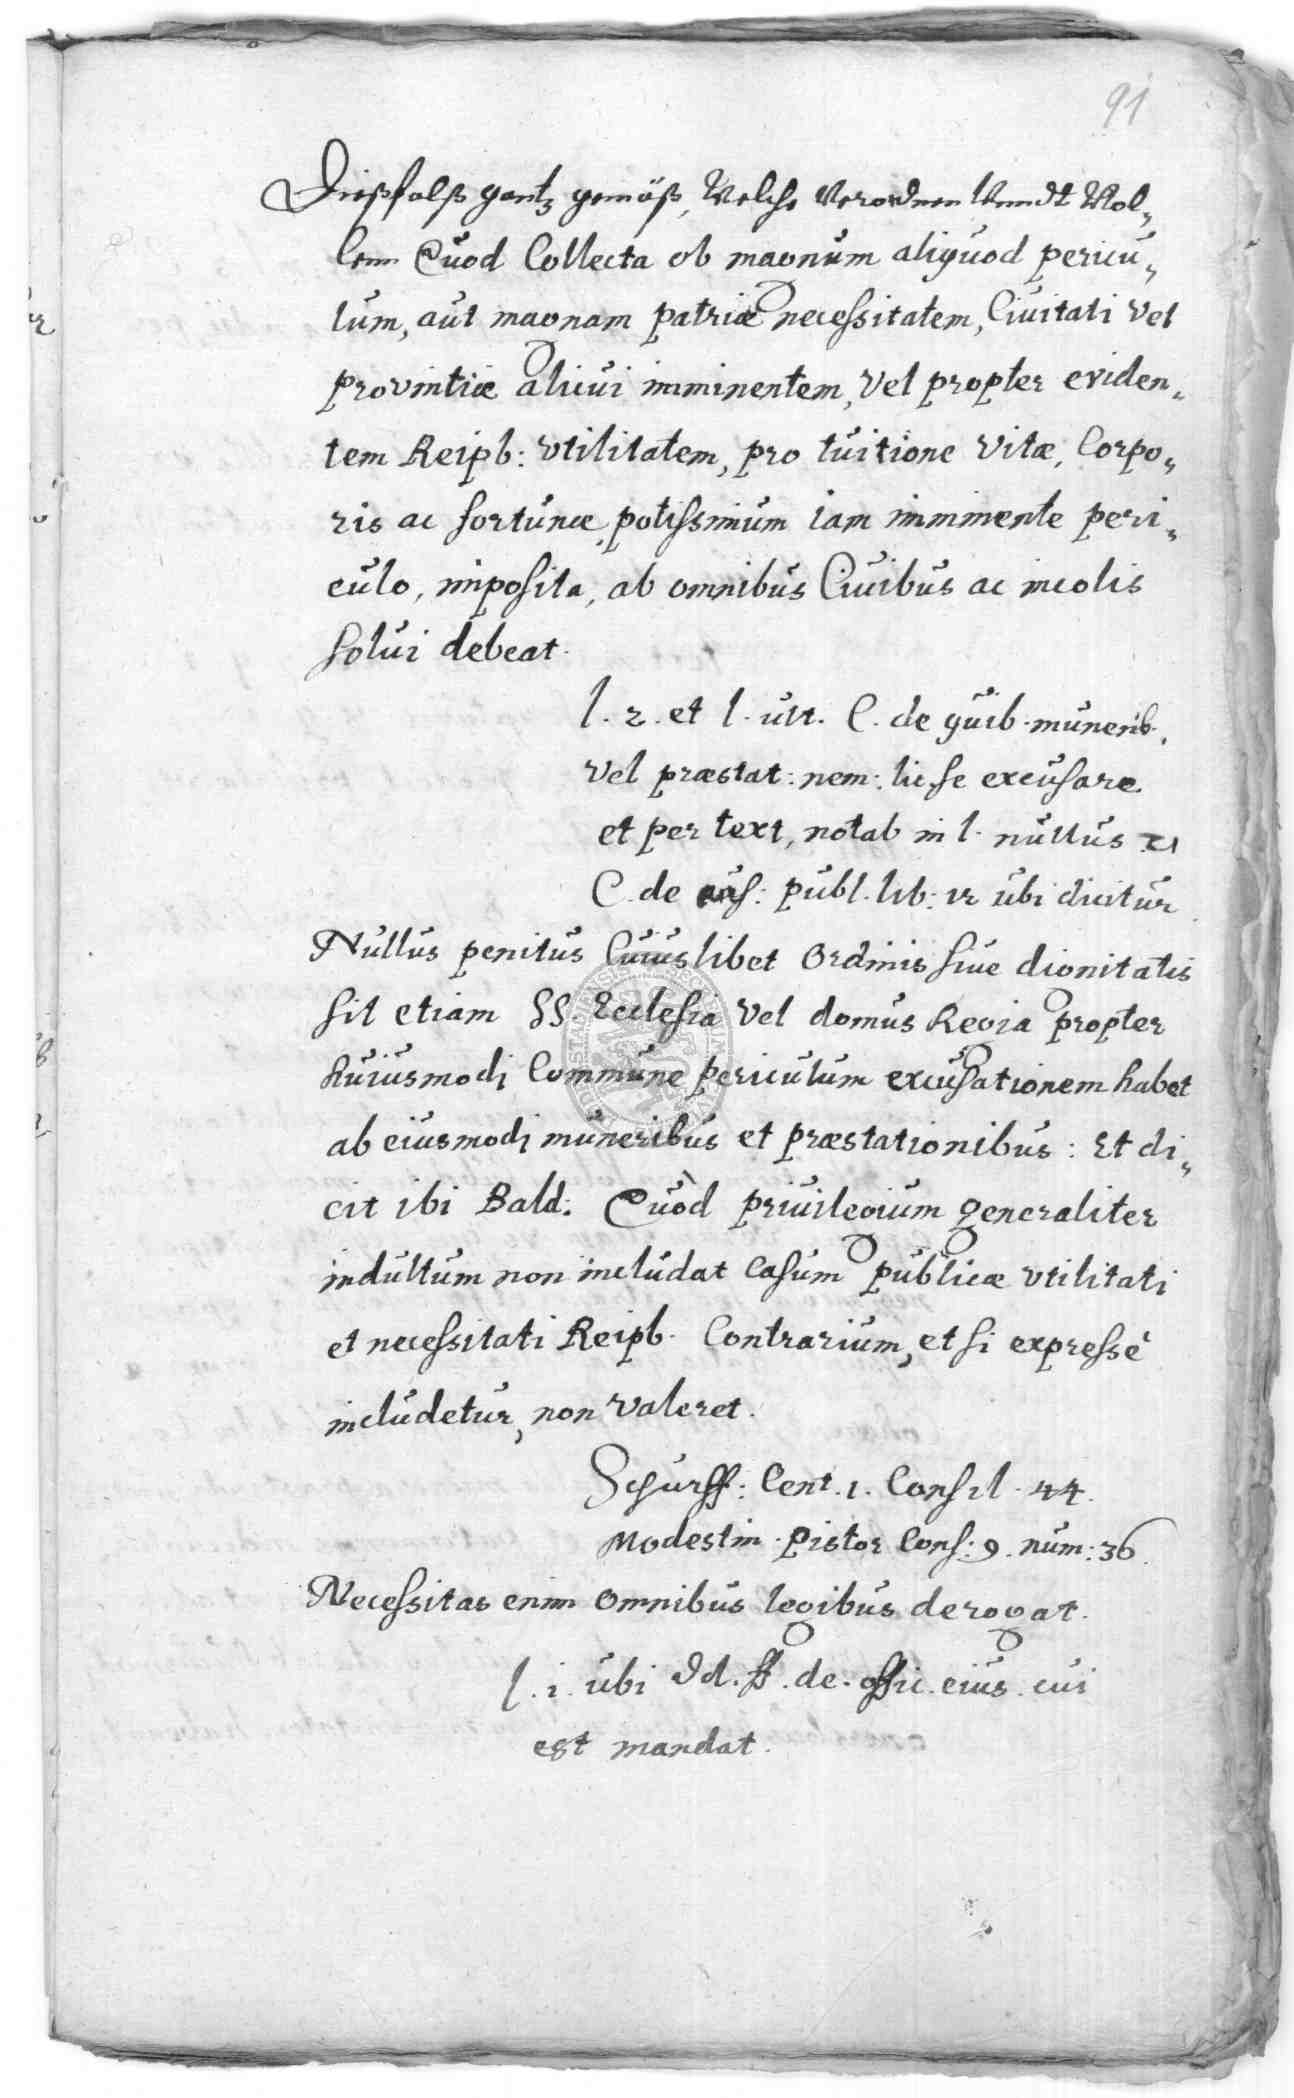 91
Dießfalß gantz gemäß, Welche Verordnen Vnndt Wol„
lenn Quod Collecta ob magnum aliquod pericu„
lum, aut magnam patriæ necessitatem, Ciuitati Vel
provintiæ alicui imminentem, Vel propter eviden„
tem Reipb: vtilitatem, pro tuitione Vitæ, Corpo„
ris ac fortunæ, potissimum iam imminente peri„
culo, imposita, ab omnibus Ciuibus ac incolis
solui debeat.
l. 2. et l. ult. C. de quib. munerib.
Vel præstat: nem: lic. se excusare
et per text, notab in l. nullus
C. de publ. lib: 12 ubi dicitur
Nullus penitus Cuiuslibet Ordinis siue dignitatis
sit etiam SS. Ecclesia Vel domus Regia propter
huiusmodj Commune periculum excusationem habet
ab eiusmodj muneribus et præstationibus: Et di„
cit ibi Bald: Quòd priuilegium generaliter
indultum non includat Casum publicæ vtilitati
et necessitati Reipb. Contrarium, et si expressè
includetur, non valeret.
Schurff: Cent. 1. Consil. 44.
Modestin. Pistor Cons: 9. num: 36.
Necessitas enim omnibus legibus derogat.
l. i. ubi Dd. ff. de. offic. eius. cui
est mandat.